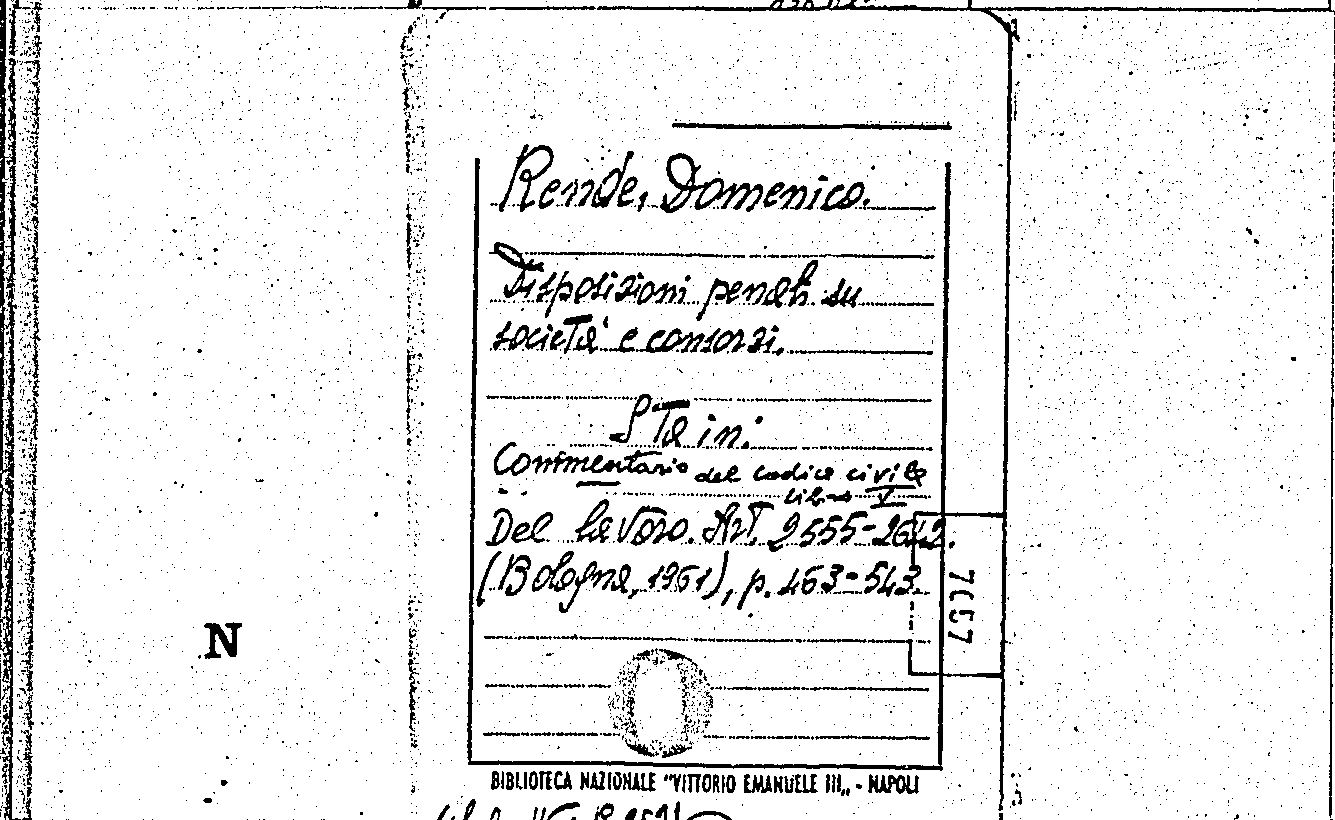 Rende, Domenico.
Disposizioni penali su
società e consorzi.
Sta in:
Commentario del codice civile
Libro V
Del lavoro. Art. 2555-2642.
(Bologna, 1961), p. 463-543.
7057
N
BIBLIOTECA NAZIONALE "VITTORIO EMANUELE III„ - NAPOLI